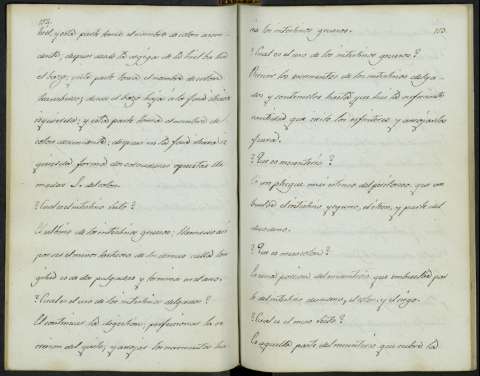 152.
hiel, y esta parte toma el nombre de colon ascen-
dente; despues desde la vegiga de la hiel ha ha
el bazo, y esta parte toma el nombre de colon
transverso; desde el bazo baja a la fosa iliaca
izquierda; y esta parte toma el nombre de
colon descendente, despues en la fosa iliaca iz-
quierda forma dos corvaduras opuestas lla-
madas S. del colon.
¿Cual es el intestino recto?
El ultimo de los intestinos gruesos; llamado asi
por ser el menos tortuoso de los demas: su lon-
gitud es de pulgadas y termina en el ano.
¿Cual es el uso de los intestinos delgados?
El continuar la digestion; perfeccionar la se-
crecion del quilo, y arrojar los escrementos ha-
153.
cia los intestinos gruesos.
¿Cual es el uso de los intestinos gruesos?
Recivir los escrementos de los intestinos delga-
dos y contenerlos hasta que haya la suficiente
cantidad que escite los esfinteres y arrojarlos
fuera.
¿Que es mesenterio?
Es un pliegue mas estenso del peritoneo, que en-
buelve el intestino yeyuno, el ileon, y parte del
duodeno.
¿Que es mesocolon?
La una porcion del mesenterio, que embuelve par-
te del intestino duodeno, el colon, y el ciego.
¿Cual es el meso recto?
Es aquella parte del mesenterio que cubre la